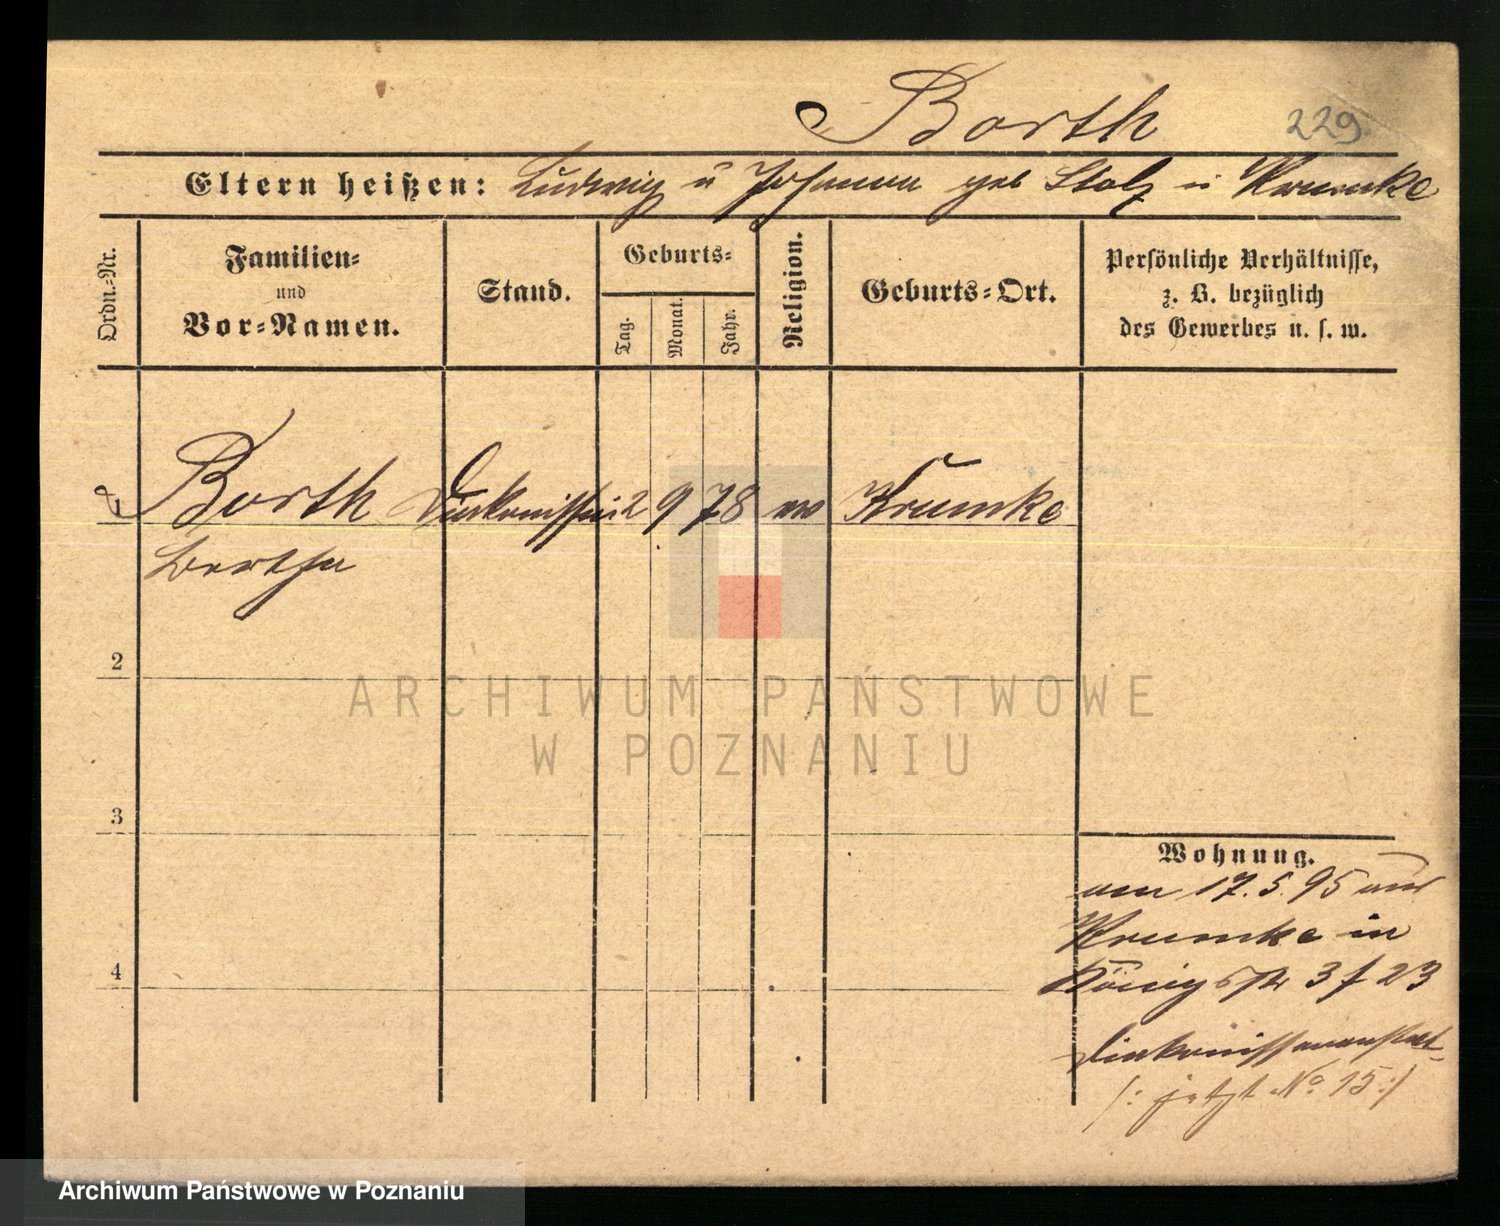 Borth 229
Eltern heißen: Ludwig u Johanna geb Stolz in Krumke
Ordn.-Nr.
Familien-
und
Vor-Namen.
Stand.
Geburts-
Tag.
Monat.
Jahr.
Religion.
Geburts-Ort.
Persönliche Verhältnisse,
z. B. bezüglich
des Gewerbes u. s. w.
1 Borth Diakonissin 2 9 78 Krumke
Bertha
2
3
4
ARCHIWUM PAŃSTWOWE
W POZNANIU
Wohnung.
am 17.5.95 aus
Krumke in
Königstr 3 / 23
Diakonissenanstalt
/: jetzt No 15 :/
Archiwum Państwowe w Poznaniu